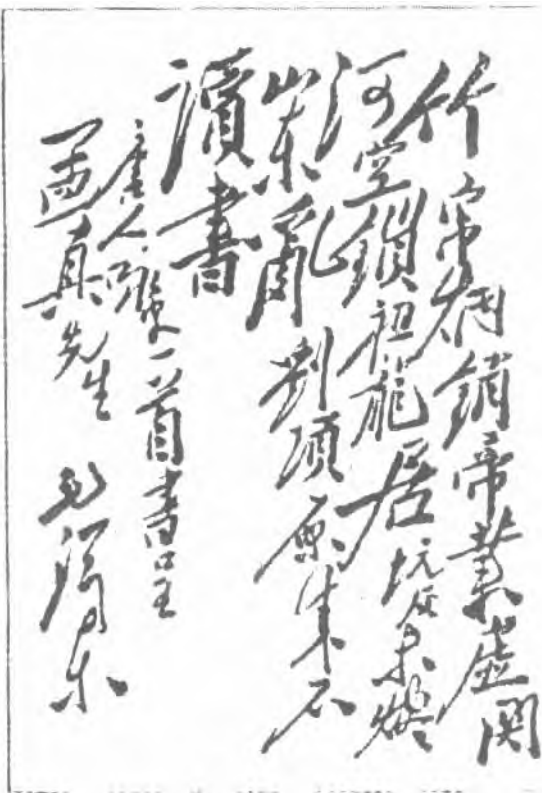 竹帛烟銷帝業虛関
河空鎖祖龍居坑灰未燼
山東亂劉項原来不
讀書
唐人詠史一首書呈
孟真先生 毛澤东